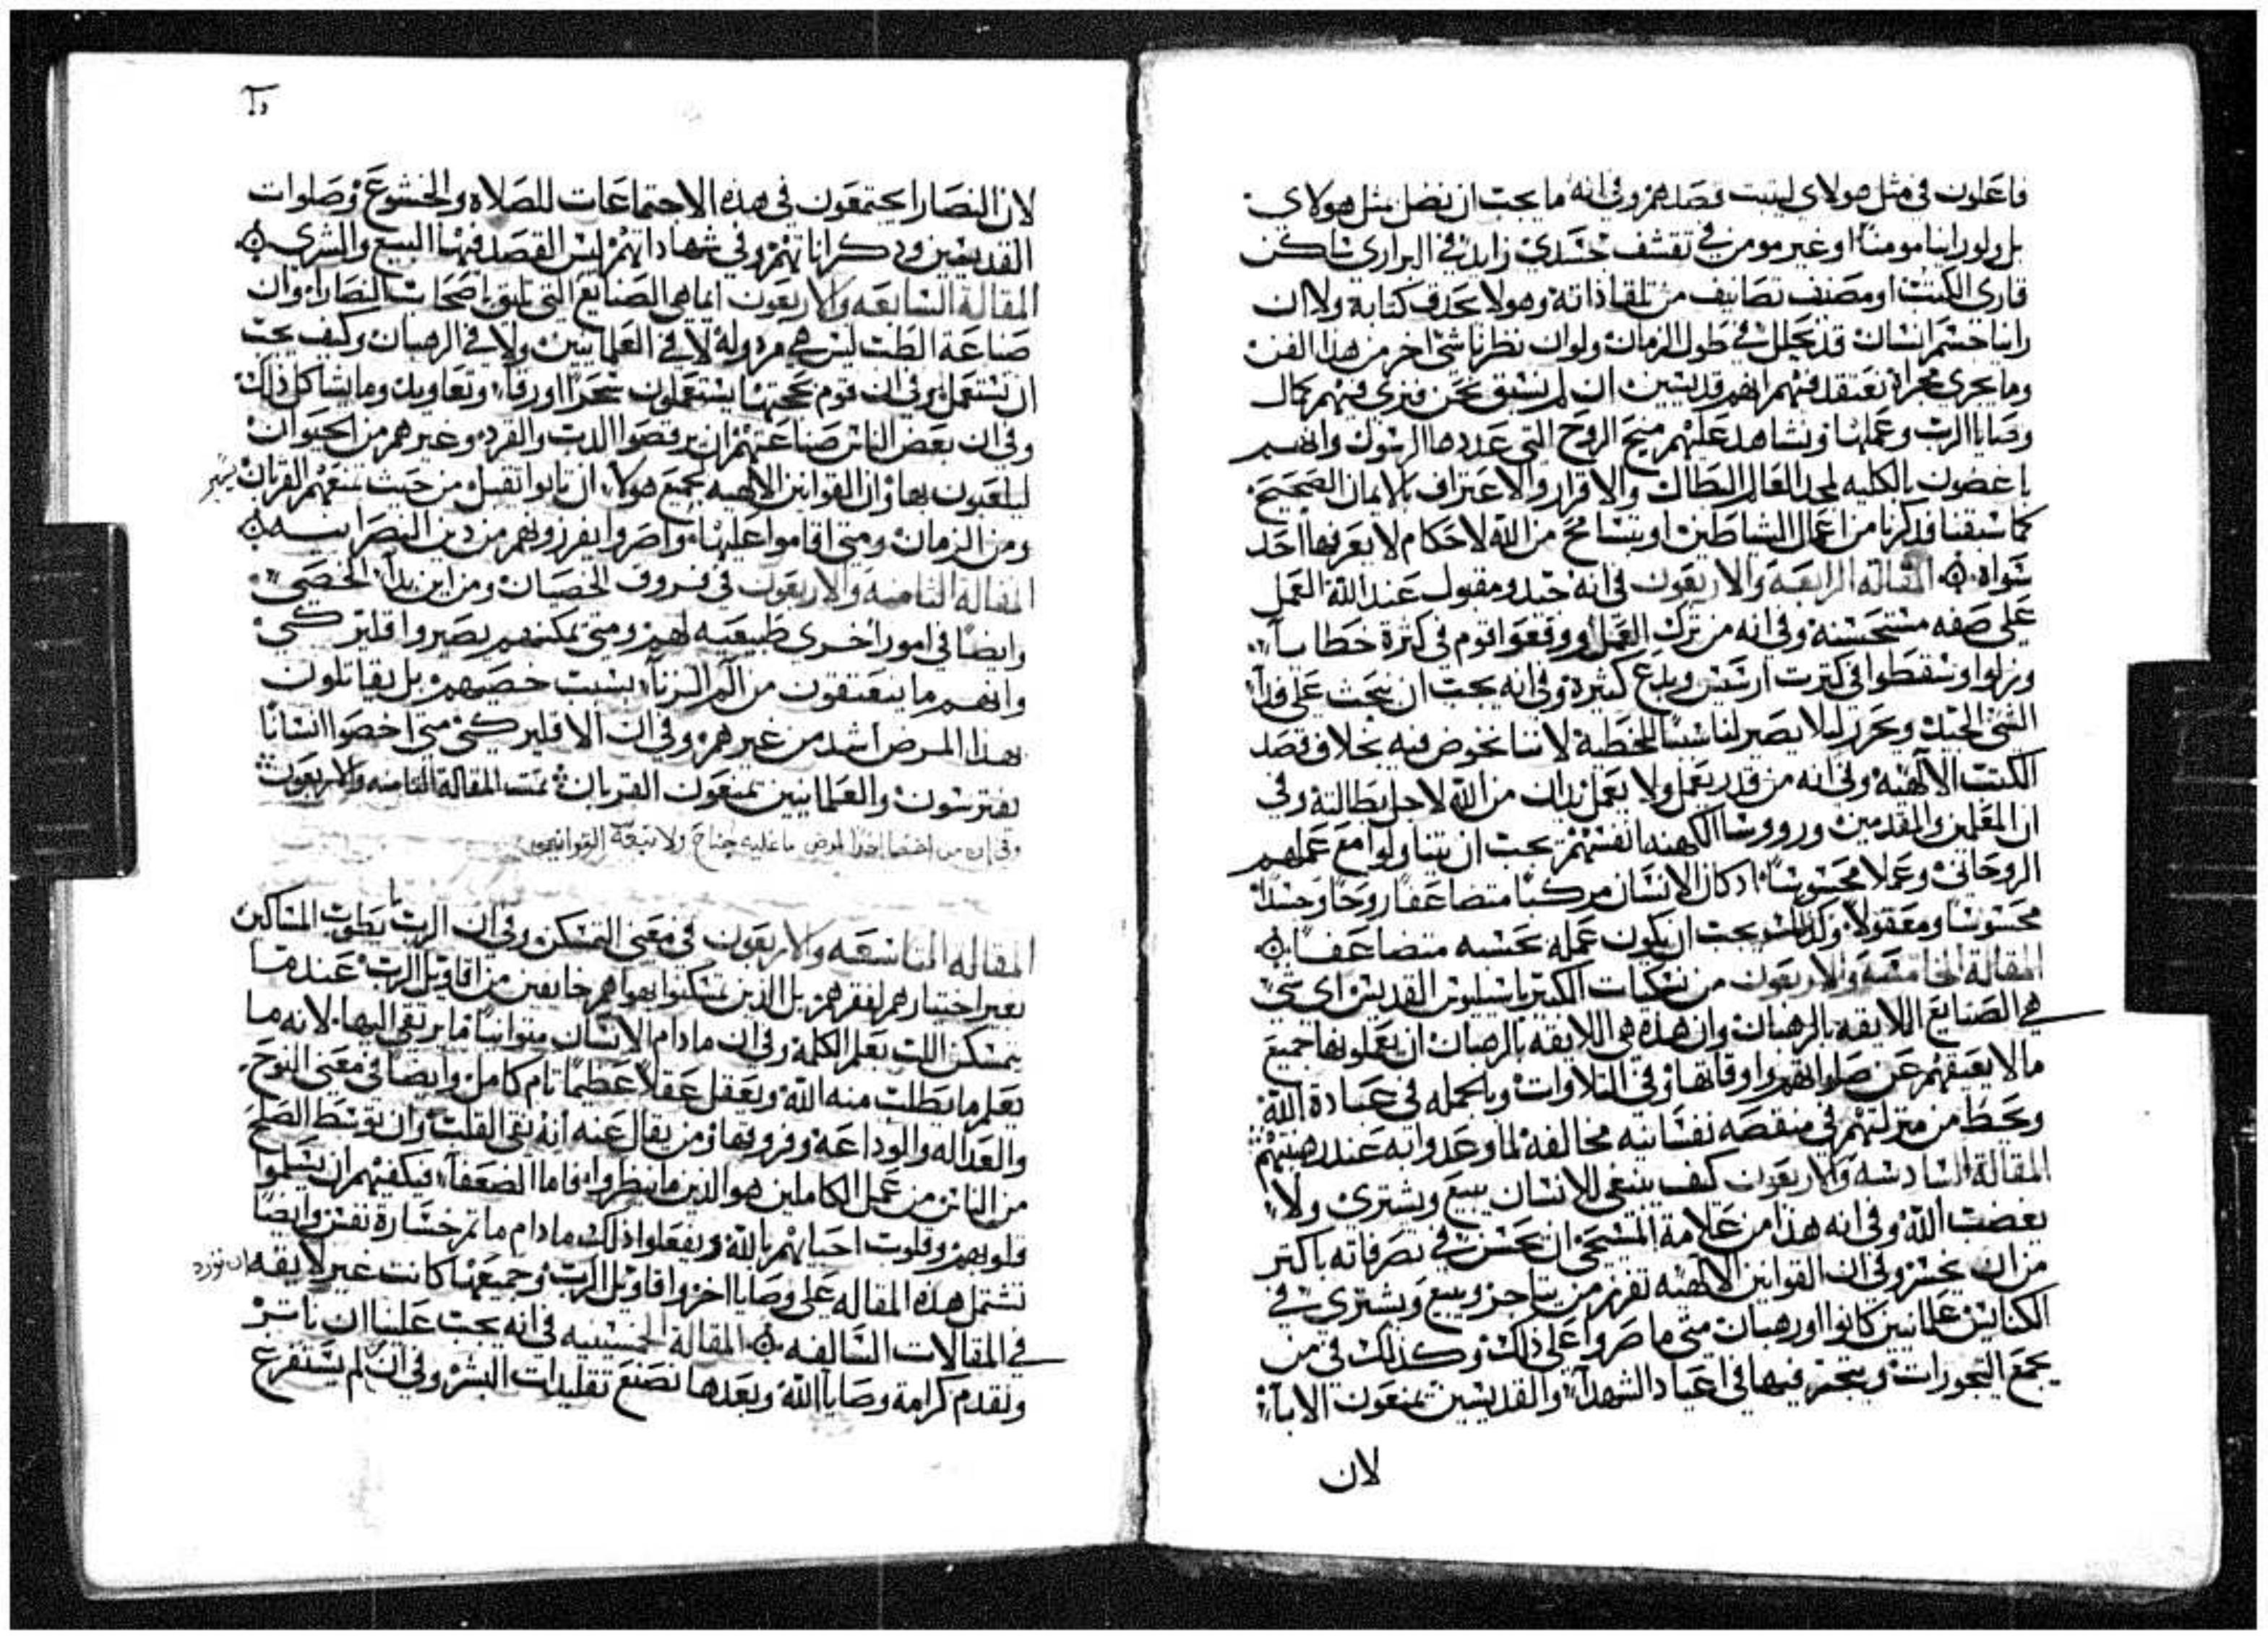 فاعلون في مثل هولاى ليثبت قصدهم وفي انه ما يجب ان نضل بمثل هولاى
بل ولو راينا مومنًا او غير مومن في تقشف جسدي زايد في البراري ساكن
قارى الكتب او مصنف تصانيف من تلقا ذاته وهو لا يحدق كتابة ولا ان
راينا جسم انسان قد تحلل في طول الزمان ولو ان نظرنا شي اخر من هذا الفن
وما يجري مجراه نعتقد فيهم انهم قديسين ان لم نسبق نحن فنرى فيهم كمال
وصايا الرب وعملها ونشاهد عليهم منح الروح التي عددها الرسول وانهم
باغضون بالكليه لمجد العالم البطال والاقرار والاعتراف بالايمان الصحيح
كما سبقنا فذكرنا من اعمال الشياطين او بتسامح من الله لاحكام لا يعرفها احد
سواه المقالة الرابعة والاربعون في انه جيد ومقبول عند الله العمل
على صفه مستحسنة وفي انه من ترك العمل ووقعوا قوم في كثرة خطايا
ونزلوا وسقطوا في كثرت ارسس وبدع كثيرة وفي انه يجب ان نبحث على
الشي الجيد ونحرر ليلا يصير لنا سببًا للخطية لاننا نخوض فيه بخلاف قصد
الكتب الالهية وفي انه من قدر يعمل ولا يعمل يدان من الله لاجل بطالته وفي
ان المعلمين والمقدمين وروسا الكهنه انفسهم يجب ان يتناولوا مع عملهم
الروحاني وعملا محسوسًا اد كان الانسان مركبا متضاعفا روحا وجسدا
محسوسا ومعقولا وكذلك يجب ان يكون عمله بحسبه متضاعفا
المقالة الخامسة والاربعون من نسكيات الكبير باسيليوس القديس اي شي
هي الصنايع اللايقه بالرهبان وان هذه هي اللايقه بالرهبان ان يعملونها جميع
مالا يعيقهم عن صلواتهم واوقاتها وفي التلاوات وبالجمله في عبادة الله
ويحط من منزلتهم في منقصه نفسانيه مخالفة لما وعدوا به عند رهبنتهم
المقالة السادسه والاربعون كيف ينبغي للانسان يبيع ويشتري ولا
يغضب الله وفي انه هذا من علامة المسيحي ان يخسر في تصرفاته باكتر
من ان يخسر وفي ان القوانين الالهيه تفرز من يتاجر ويبيع ويشتري في
الكنايس علمانيين كانوا او رهبان متى ما صروا على ذلك وكذلك في من
يجمع البخورات ويتجر فيها في اعياد الشهدا والقديسين يمنعون الابا
لان
لان النصارا يجتمعون في هذه الاجتماعات للصلاة والخشوع وصلوات
القديسين ودكراناتهم وفي شهاداتهم ليس القصد فيها البيع والشرى
المقالة السابعه والاربعون ايما هي الصنايع التي تليق باصحاب النصارا وان
صناعة الطب ليس هي مردوله لا في العلمانيين ولا في الرهبان وكيف يجب
ان تستعمل وفي ان قوم بحجتها يستعملون سحرًا اورقا وتعاويد وما يشاكل ذلك
وفي ان بعض الناس صناعتهم ان يرقصوا الدب والقرد وغيرهم من الحيوان
ليلعبون بها وان القوانين الالهيه لجميع هولا ان تابوا تقبل من حيث تمنعهم القربان
ومن الزمان ومتى اقاموا عليها واصروا يفرزونهم من دين النصرانيه
المقاله الثامنه والاربعون في فروق الخصيان ومن اين بدا الخصي
وايضًا في امور اخرى طبيعيه لهم ومتى يمكنهم يصيروا اقليركي
وانهم ما ينعتقون من الم الزنا بسبب خصيهم بل يقاتلون
بهذا المرض اشد من غيرهم وفي ان الاقليركي متى اخصوا انسانًا
يفترسون والعلمانيين يمنعون القربان تمت المقالة الثامنه والاربعون
وفي ان من اخصا احدًا لمرض ما عليه جناح ولا تبعة القوانين
المقاله التاسعه والاربعون في معنى التمسكن وفي ان الرب ما يطوب المساكين
بغير اختيارهم لفقرهم بل الذين تمسكنوا بهواهم خايفين من اقاويل الرب عندما
يتمسكن اللب بعلم الكلمة وفي ان مادام الانسان متوانيًا ما يرتقي اليها لانه ما
يعلم ما يطلب منه الله ويعقل عقلا عظيمًا تام كامل وايضًا في معنى النوح
والعداله والوداعة وفروقها ومن يقال عنه انه نقي القلب وان توسط الصلح
من الناس من عمل الكاملين هو الذين ما ينظروا فاما الضعفا فيكفيهم ان يسلموا
قلوبهم وقلوب احبايهم بالله ويفعلوا ذلك مادام ما تم خسارة نفس وايضًا
تشتمل هذه المقاله على وصايا اخر واقاويل الرب وجميعها كانت غير لايقه ان تورد
في المقالات السالفه المقالة الخمسينيه في انه يجب علينا ان ناتر
ونقدم كرامة وصايا الله وبعدها نصنع تقليدات البشر وفي ان لم يستفرغ